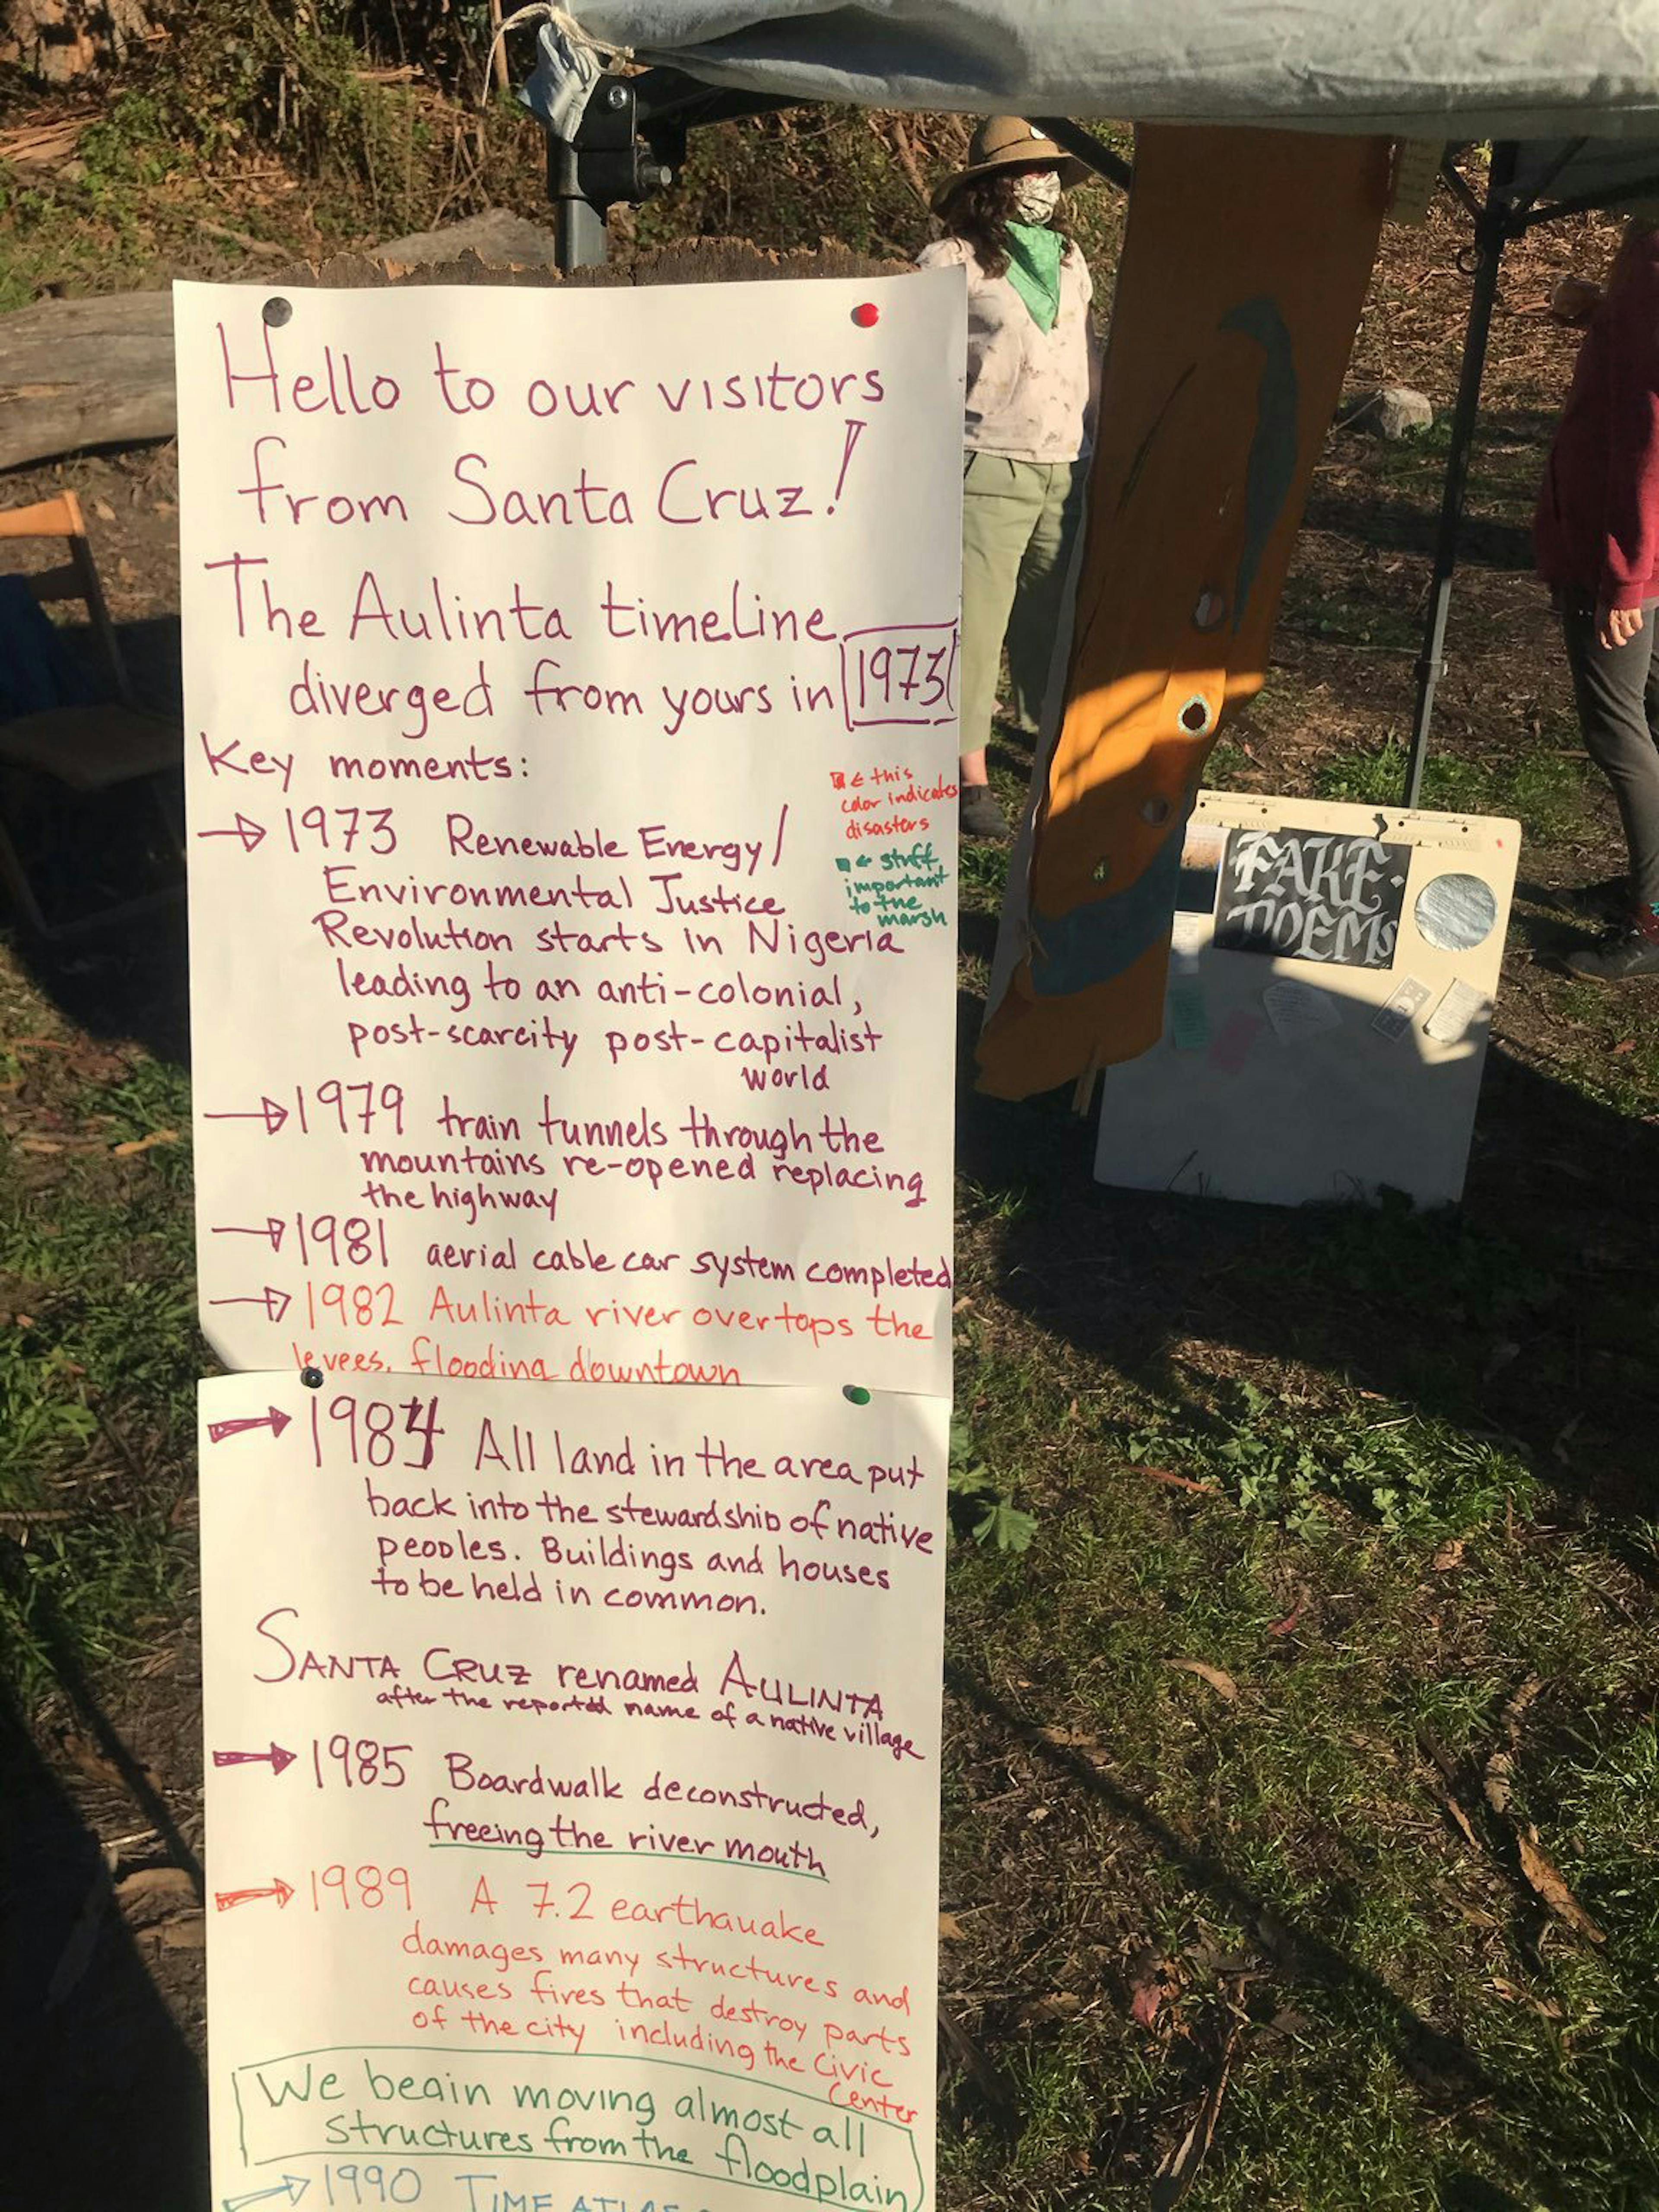 Hello to our visitors
from Santa Cruz!
The Aulinta timeline
diverged from yours in 1973
Key moments:
← this
color indicates
disasters
← stuff
important
to the
marsh
→ 1973 Renewable Energy/
Environmental Justice
Revolution starts in Nigeria
leading to an anti-colonial,
post-scarcity post-capitalist
world
→ 1979 train tunnels through the
mountains re-opened replacing
the highway
→ 1981 aerial cable car system completed
→ 1982 Aulinta river overtops the
levees, flooding downtown
→ 1984 All land in the area put
back into the stewardship of native
peoples. Buildings and houses
to be held in common.
SANTA CRUZ renamed AULINTA
after the reported name of a native village
→ 1985 Boardwalk deconstructed,
freeing the river mouth
→ 1989 A 7.2 earthquake
damages many structures and
causes fires that destroy parts
of the city including the Civic
Center
We begin moving almost all
structures from the floodplain
→ 1990 TIME
FAKE
POEMS